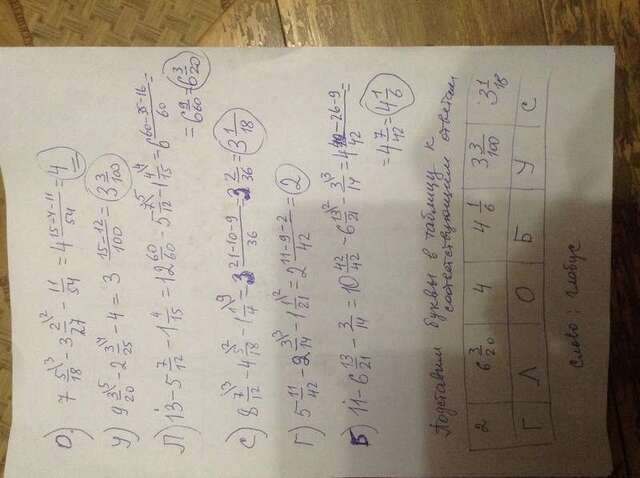 О) 7 5/18 \3 − 3 2/27 \2 − 11/54 = 4 (15−4−11)/54 = 4
У) 9 3/20 \5 − 2 3/25 \4 − 4 = 3 (15−12)/100 = 3 3/100
Л) 13 − 5 7/12 − 1 4/15 = 12 60/60 − 5 7/12 \5 − 1 4/15 \4 = 6 (60−35−16)/60 =
= 6 9/60 = 6 3/20
С) 8 7/12 \3 − 4 5/18 \2 − 1 1/4 \9 = 3 (21−10−9)/36 = 3 2/36 = 3 1/18
Г) 5 11/42 − 2 3/14 \3 − 1 1/21 \2 = 2 (11−9−2)/42 = 2
Б) 11 − 6 13/21 − 3/14 = 10 42/42 − 6 13/21 \2 − 3/14 \3 = 4 (42−26−9)/42 =
= 4 7/42 = 4 1/6
Подставим буквы в таблицу к
соответствующим ответам
2 6 3/20 4 4 1/6 3 3/100 3 1/18
Г Л О Б У С
Слово: глобус